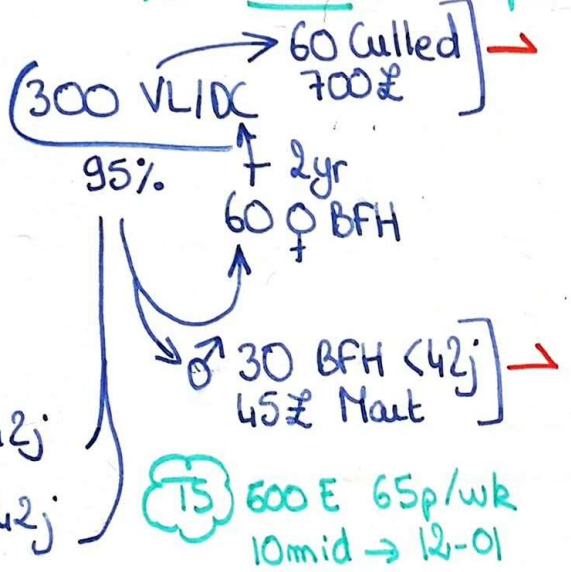 60 Culled
700£
300 VL/DC
95%
2yr
60 ♀ BFH
♂ 30 BFH <42j
45£ Mart
2j
42j
T5 600 E 65p/wk
10mid → 12-01